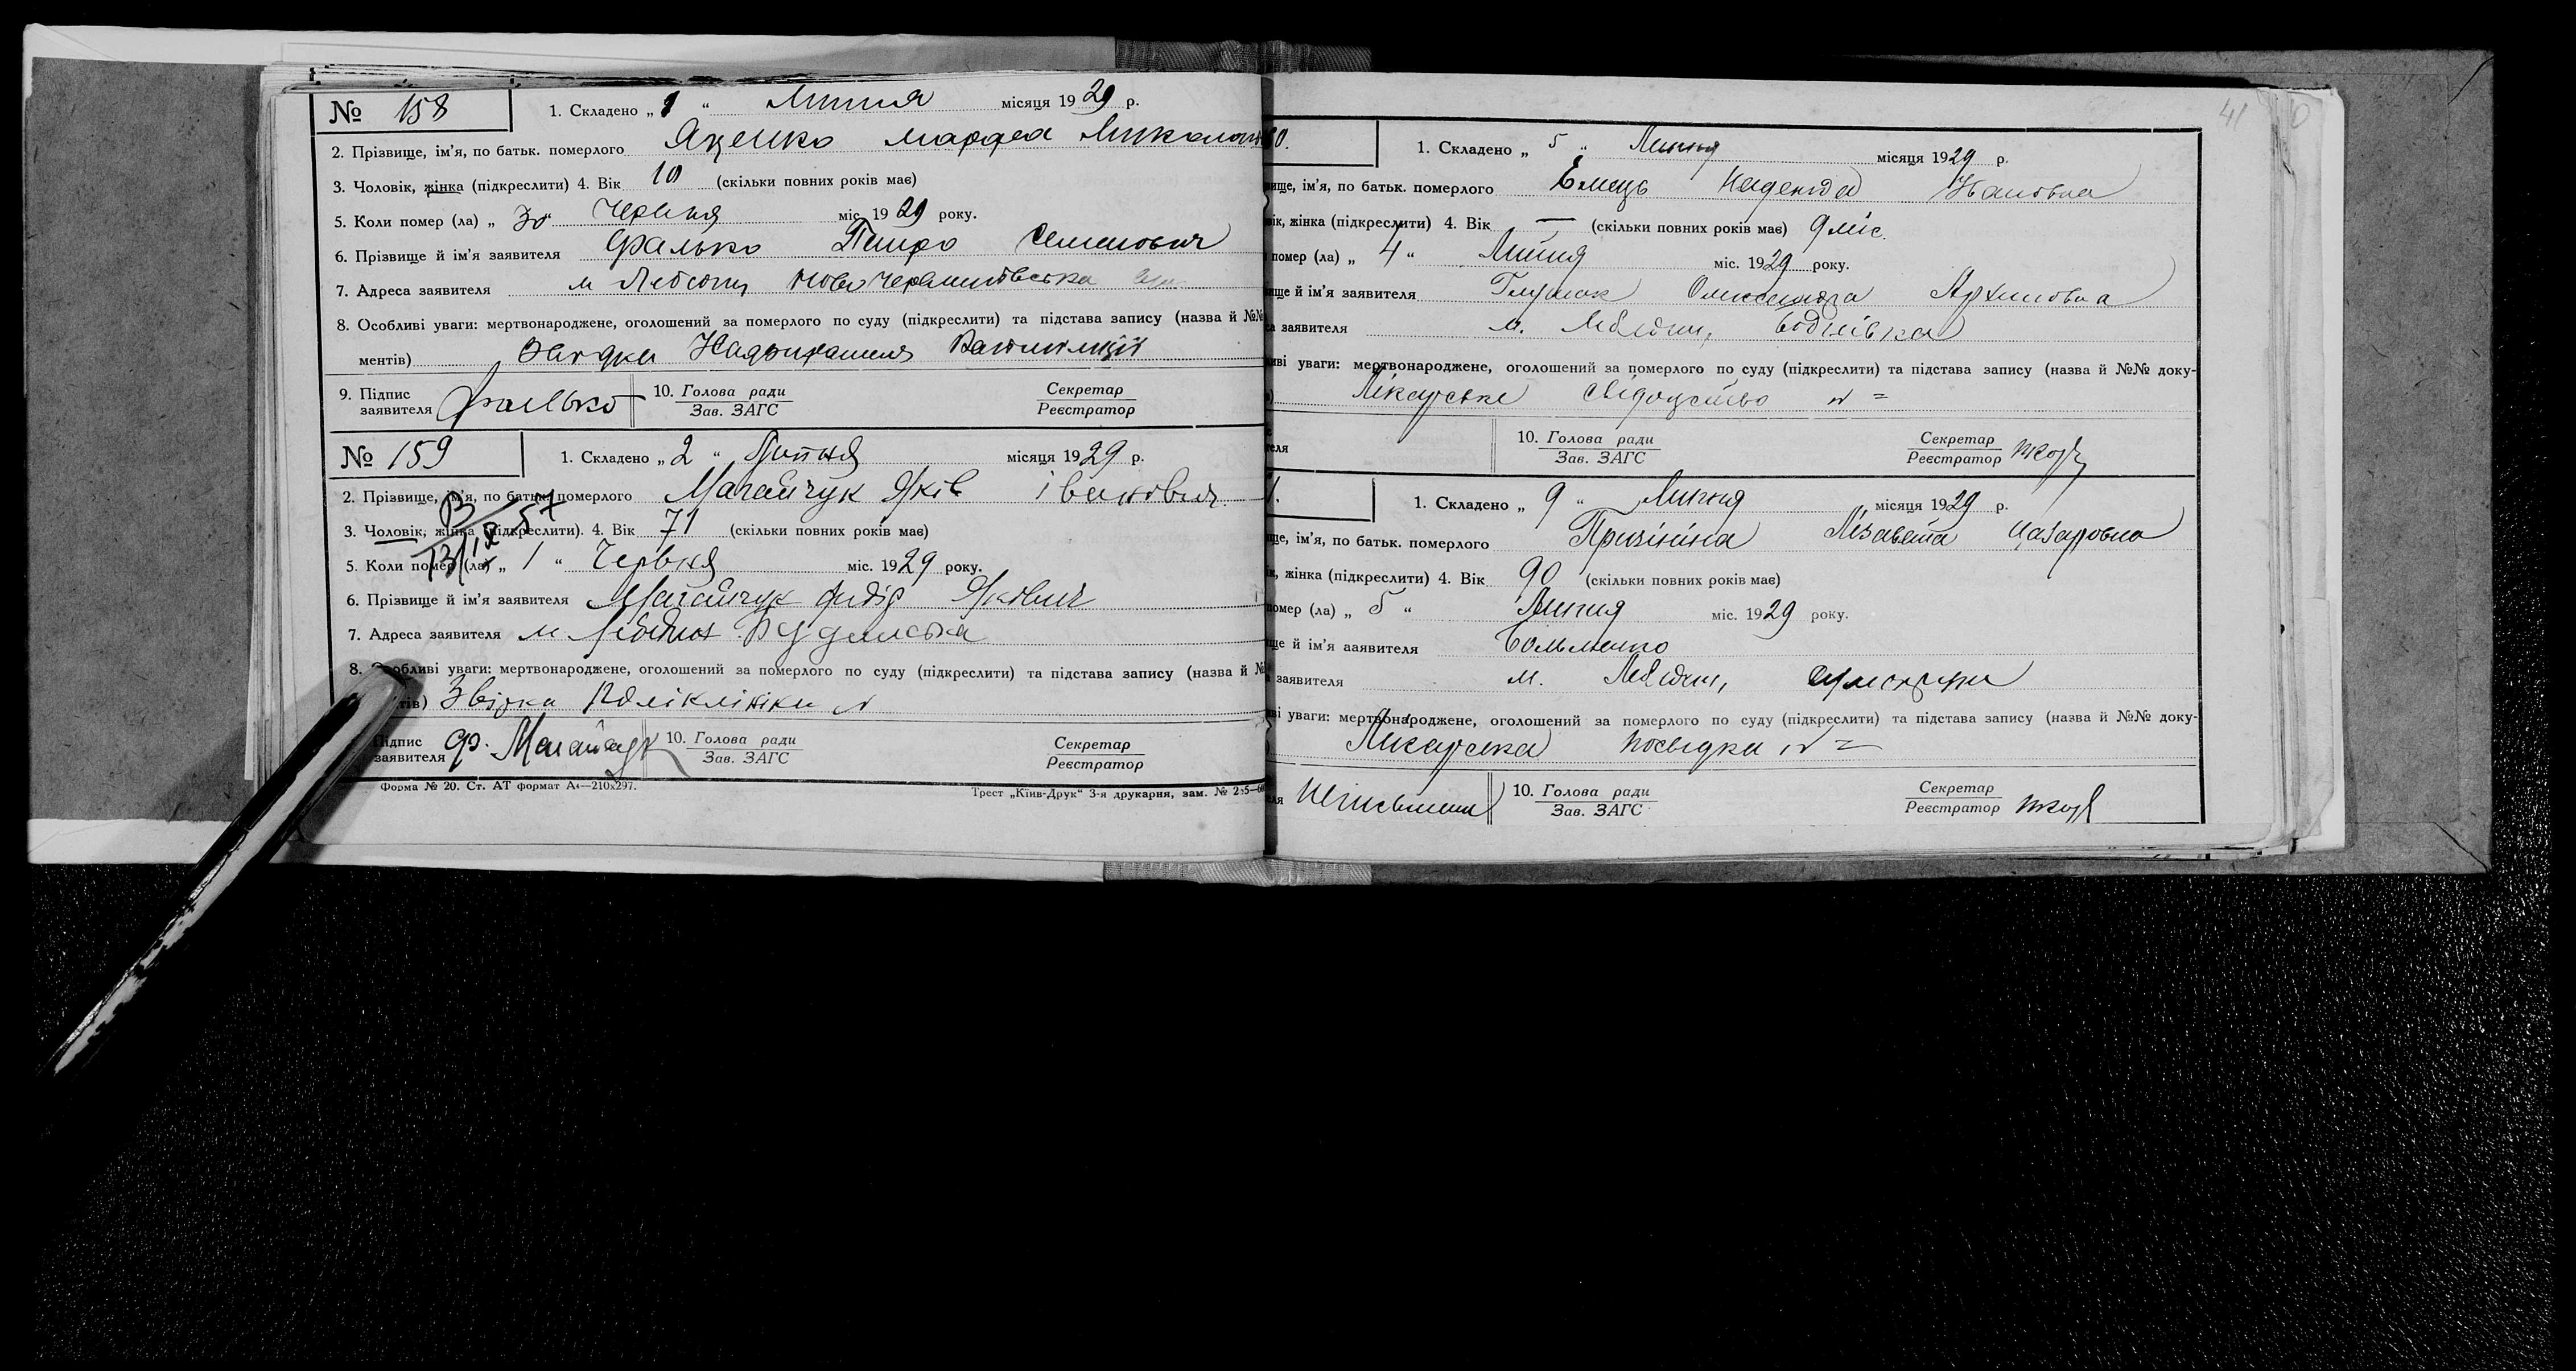 № 158 1. Складено „ 1 “ Липня місяця 1929 р.
2. Прізвище, ім'я, по батьк. померлого Яценко Марфа
3. Чоловік, жінка (підкреслити) 4. Вік 10 (скільки повних років має)
5. Коли помер (ла) „ 30 “ Червня міс. 1929 року.
6. Прізвище й ім'я заявителя Фалько Петро Семенович
7. Адреса заявителя м Лебедин
8. Особливі уваги: мертвонароджене, оголошений за померлого по суду (підкреслити) та підстава запису (назва й №№
ментів)
9. Підпис заявителя Фалько 10. Голова ради Секретар
Зав. ЗАГС Реєстратор
№ 159 1. Складено „ 2 “ Липня місяця 1929 р.
2. Прізвище, ім'я, по батьк. померлого Магайчук Яків Іванович
3. Чоловік, жінка (підкреслити). 4. Вік 71 (скільки повних років має)
5. Коли помер (ла) „ 1 “ Червня міс. 1929 року.
6. Прізвище й ім'я заявителя Магайчук Федір Якович
7. Адреса заявителя м Лебедин
8. Особливі уваги: мертвонароджене, оголошений за померлого по суду (підкреслити) та підстава запису (назва й №
тів) Звідка Поліклініки N
Підпис заявителя Ф. Магайчук 10. Голова ради Секретар
Зав. ЗАГС Реєстратор
Форма № 20. Ст. АТ формат А4—210х297. Трест „Київ-Друк“ 3-я друкарня, зам. №
41
0. 1. Складено „ 5 “ Липня місяця 1929 р.
вище, ім'я, по батьк. померлого Емець Надежда Ивановна
вік, жінка (підкреслити) 4. Вік — (скільки повних років має) 9 міс.
помер (ла) „ 4 “ Липня міс. 1929 року.
ище й ім'я заявителя Олександра Архиповна
а заявителя м. Лебедин,
иві уваги: мертвонароджене, оголошений за померлого по суду (підкреслити) та підстава запису (назва й №№ доку-
Лікарське свідоцтво N =
теля 10. Голова ради Секретар
Зав. ЗАГС Реєстратор
1. 1. Складено „ 9 “ Липня місяця 1929 р.
ще, ім'я, по батьк. померлого Лізавета Назаровна
к, жінка (підкреслити) 4. Вік 90 (скільки повних років має)
омер (ла) „ 5 “ Липня міс. 1929 року.
ще й ім'я аявителя
заявителя м. Лебедин,
ві уваги: мертвонароджене, оголошений за померлого по суду (підкреслити) та підстава запису (назва й №№ доку-
Лікарська посвідка N =
ля 10. Голова ради Секретар
Зав. ЗАГС Реєстратор